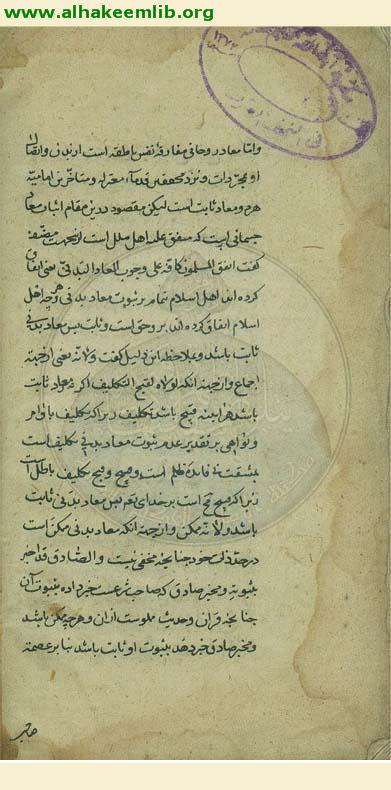 www.alhakeemlib.org
واما معاد روحانی مفارقهٔ نفس ناطقه است از بدن و اتصال
او بمجردات و نزد محققین قدماء معتزله و متاخرین امامیه
هر دو معاد ثابت است لیکن مقصود درین مقام اثبات معاد
جسمانی است که متفق علیه اهل ملل است ازینجهت مصنف
گفت اتفق المسلمون کافة علی وجوب المعاد البدنی یعنی اتفاق
کرده اند اهل اسلام تمام بر ثبوت معاد بدنی و هرچه اهل
اسلام اتفاق کرده اند بر وی حق است و ثابت پس معاد بدنی
ثابت باشد و بملاحظه این دلیل گفت ولانه یعنی ازجهة
اجماع و ازجهة انکه لولاه لقبح التکلیف اگر نه معاد ثابت
باشد هر اینه قبیح باشد تکلیف زیرا که تکلیف باوامر
و نواهی بر تقدیر عدم ثبوت معاد بدنی تکلیف است
بمشقت بی فایده ظلم است و قبیح و قبیح تکلیف باطل است
زیرا که قبیح قبیح است بر خدای تعالی پس معاد بدنی ثابت
باشد ولانه ممکن و ازجهة انکه معاد بدنی ممکن است
در حد ذات خود چنانچه مخفی نیست والصادق قد اخبر
بثبوته و مخبر صادق که صاحب شرعست خبر داده بثبوت آن
چنانچه قران و حدیث مملوست ازان و هرچه ممکن باشد
و مخبر صادق خبر دهد بثبوت او ثابت باشد بنا بر عصمة